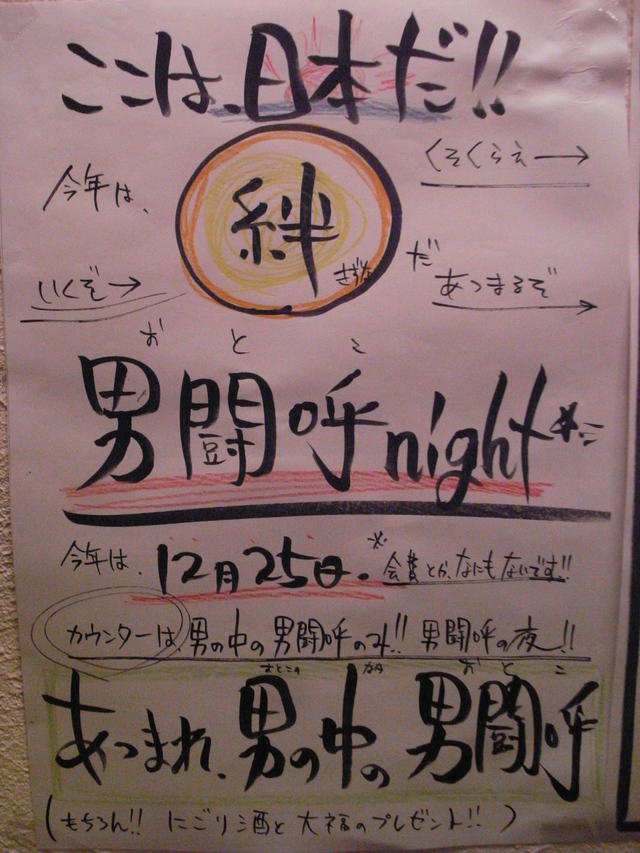 ここは、日本だ!!
くそくらえ→
今年は、
絆
きずな
だ
いくぞ→
あつまるぞ
おとこ
男闘呼night★
今年は、12月25日。※会費とか、なにもないです!!
カウンターは、男の中の男闘呼のみ!! 男闘呼の夜!!
おとこの なか おとこ
あつまれ、男の中の男闘呼
(もちろん!! にごり酒と大福のプレゼント!!)